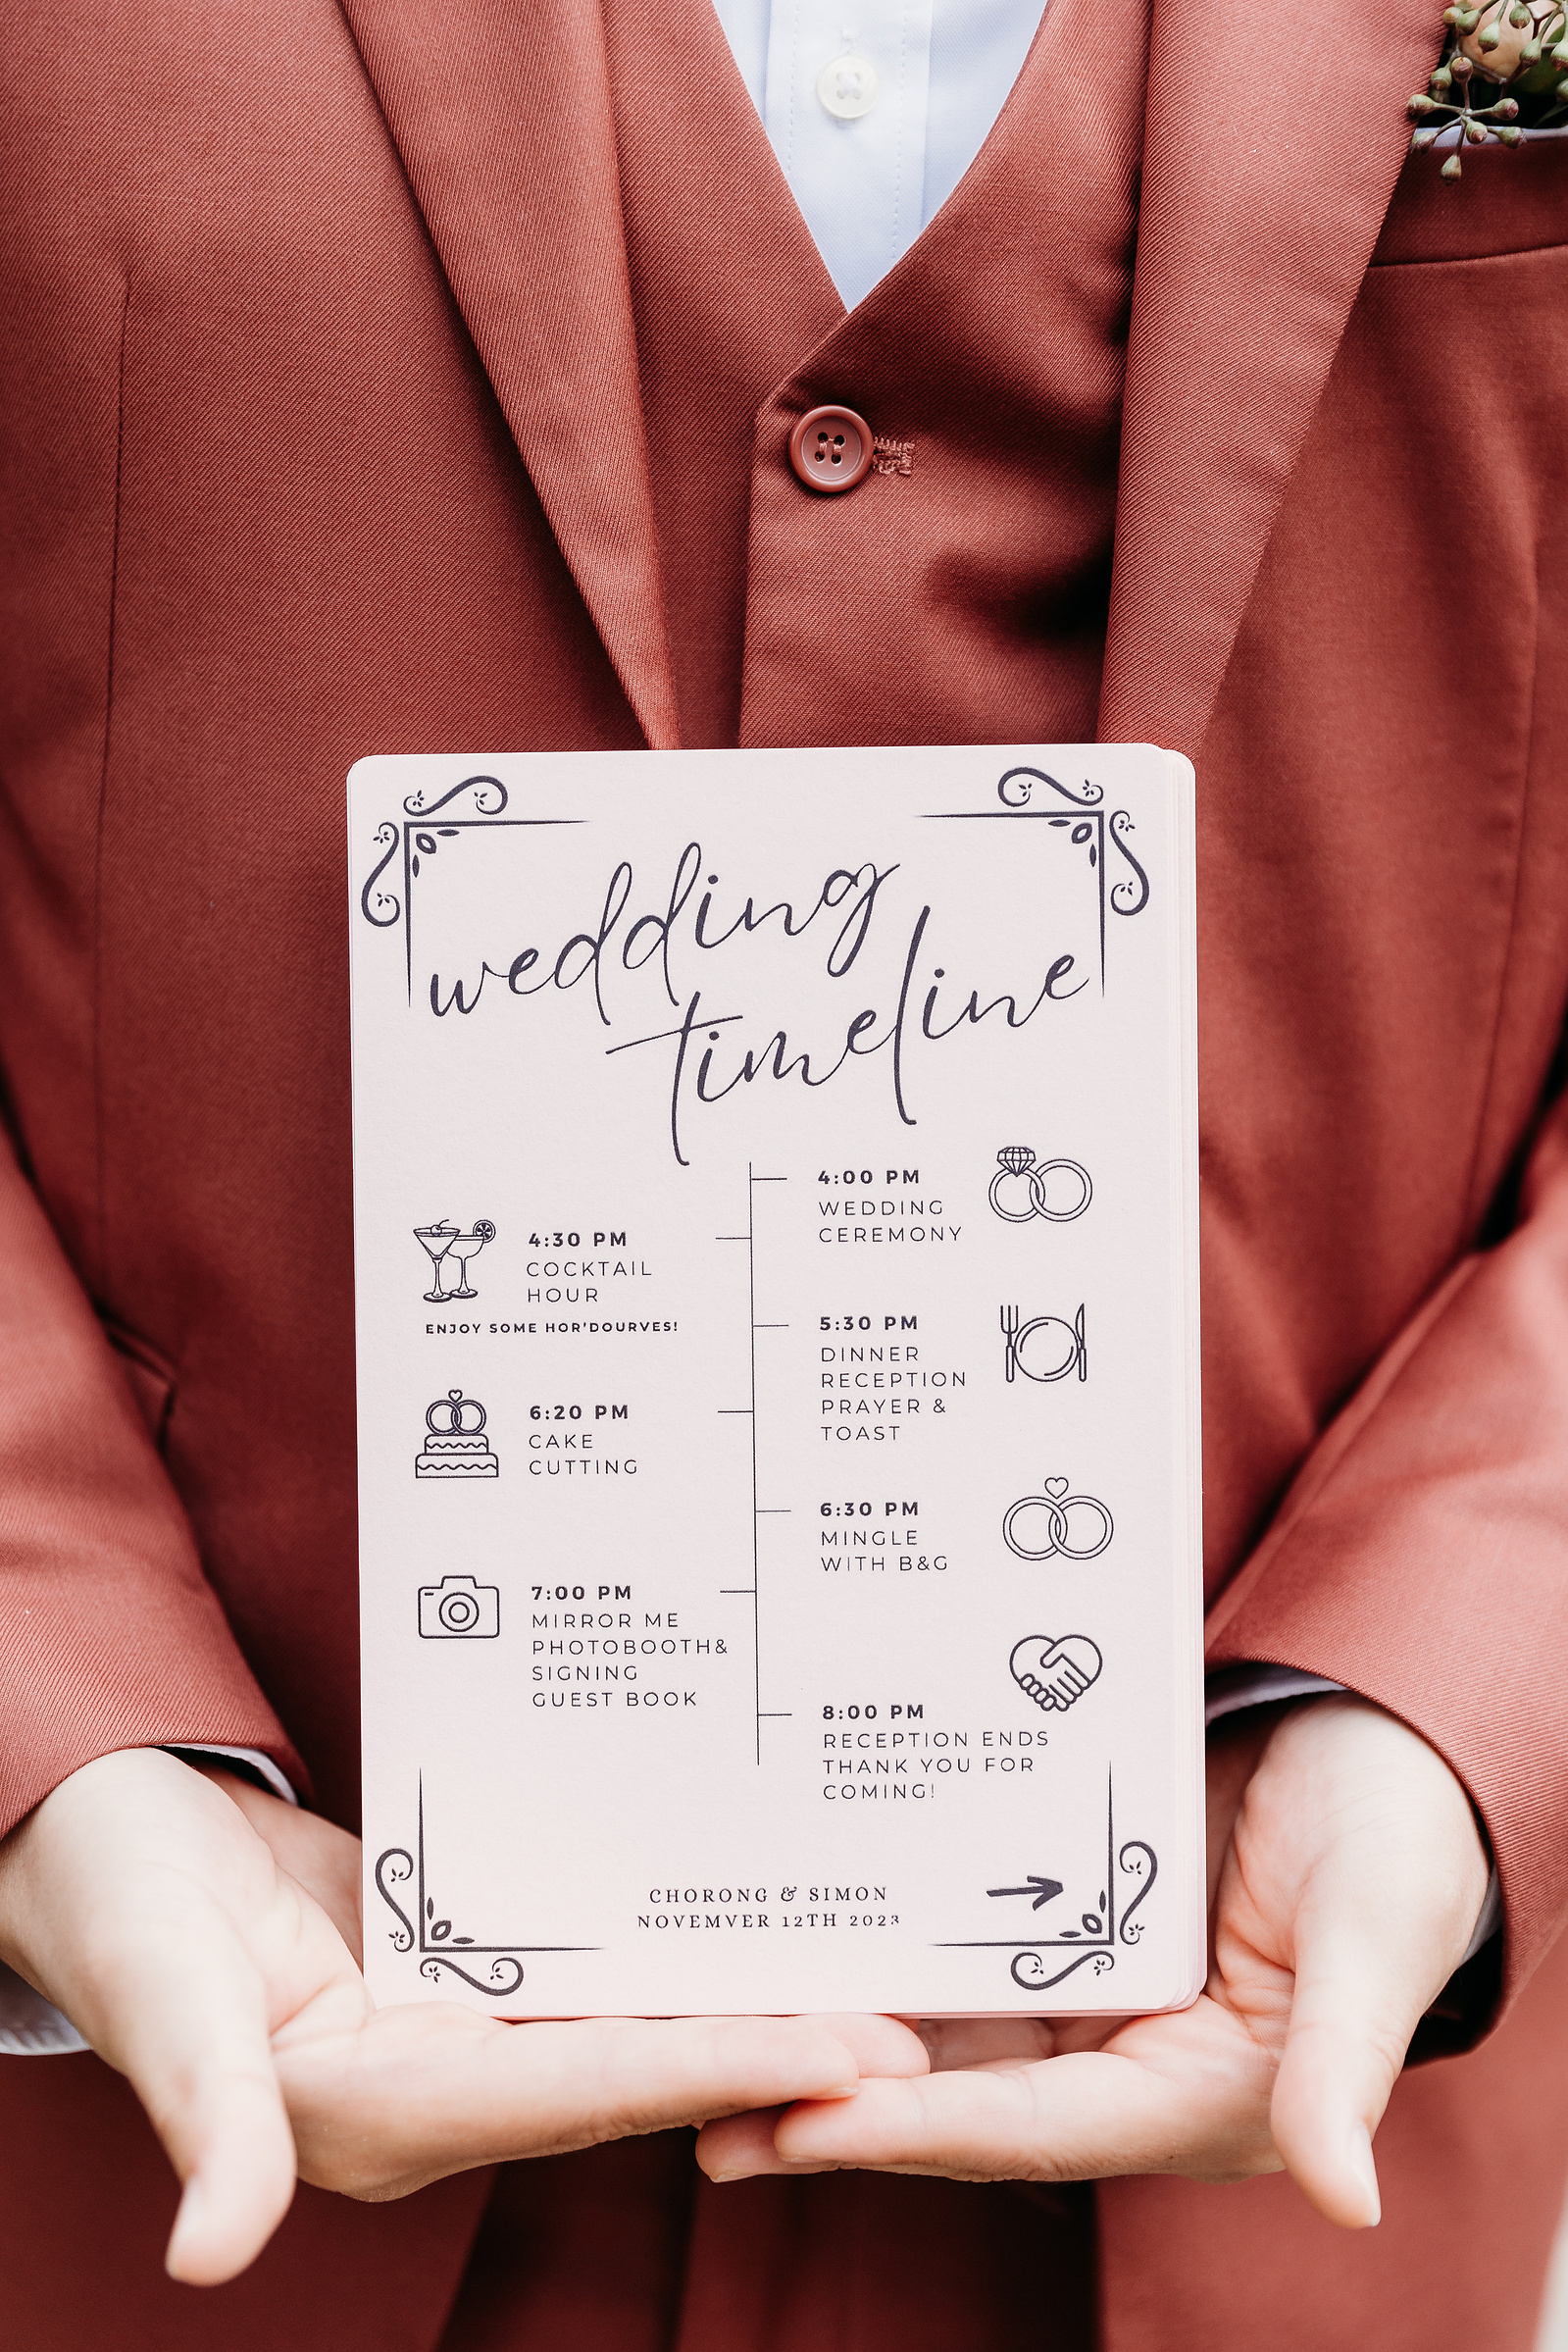 wedding
timeline
4:00 PM
WEDDING
CEREMONY
4:30 PM
COCKTAIL
HOUR
ENJOY SOME HOR'DOURVES!
5:30 PM
DINNER
RECEPTION
PRAYER &
TOAST
6:20 PM
CAKE
CUTTING
6:30 PM
MINGLE
WITH B&G
7:00 PM
MIRROR ME
PHOTOBOOTH&
SIGNING
GUEST BOOK
8:00 PM
RECEPTION ENDS
THANK YOU FOR
COMING!
CHORONG & SIMON
NOVEMVER 12TH 2023